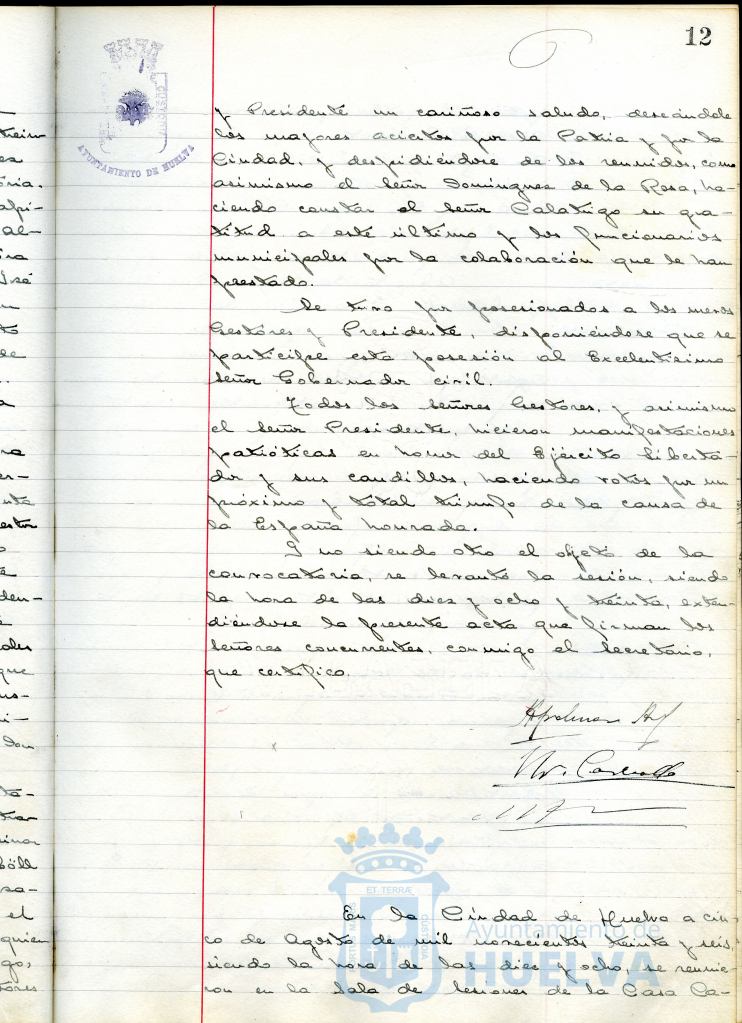 12
AYUNTAMIENTO DE HUELVA
y Presidente un cariñoso saludo, deseándole
los mayores aciertos por la Patria y por la
Ciudad, y despidiéndose de los reunidos, como
asimismo el Señor Domínguez de la Rosa, ha-
ciendo constar el Señor Calatrigo su gra-
titud a este último y los funcionarios
municipales por la colaboración que le han
prestado.
Se tuvo por posesionados a los nuevos
Gestores y Presidente, disponiéndose que se
participe esta posesión al Excelentísimo
Señor Gobernador civil.
Todos los Señores Gestores, y asimismo
el Señor Presidente, hicieron manifestaciones
patrióticas en honor del Ejército Liberta-
dor y sus caudillos, haciendo votos por un
próximo y total triunfo de la causa de
la España honrada.
Y no siendo otro el objeto de la
convocatoria, se levantó la sesión, siendo
la hora de las diez y ocho y treinta, exten-
diéndose la presente acta que firman los
Señores concurrentes, conmigo el Secretario,
que certifico.
En la Ciudad de Huelva a cin-
co de Agosto de mil novecientos treinta y seis,
siendo la hora de las diez y ocho, se reunie-
ron en la Sala de Sesiones de la Casa Ca-
ET TERRÆ
PORTUS MARIS
CUSTODIA
Ayuntamiento de
HUELVA